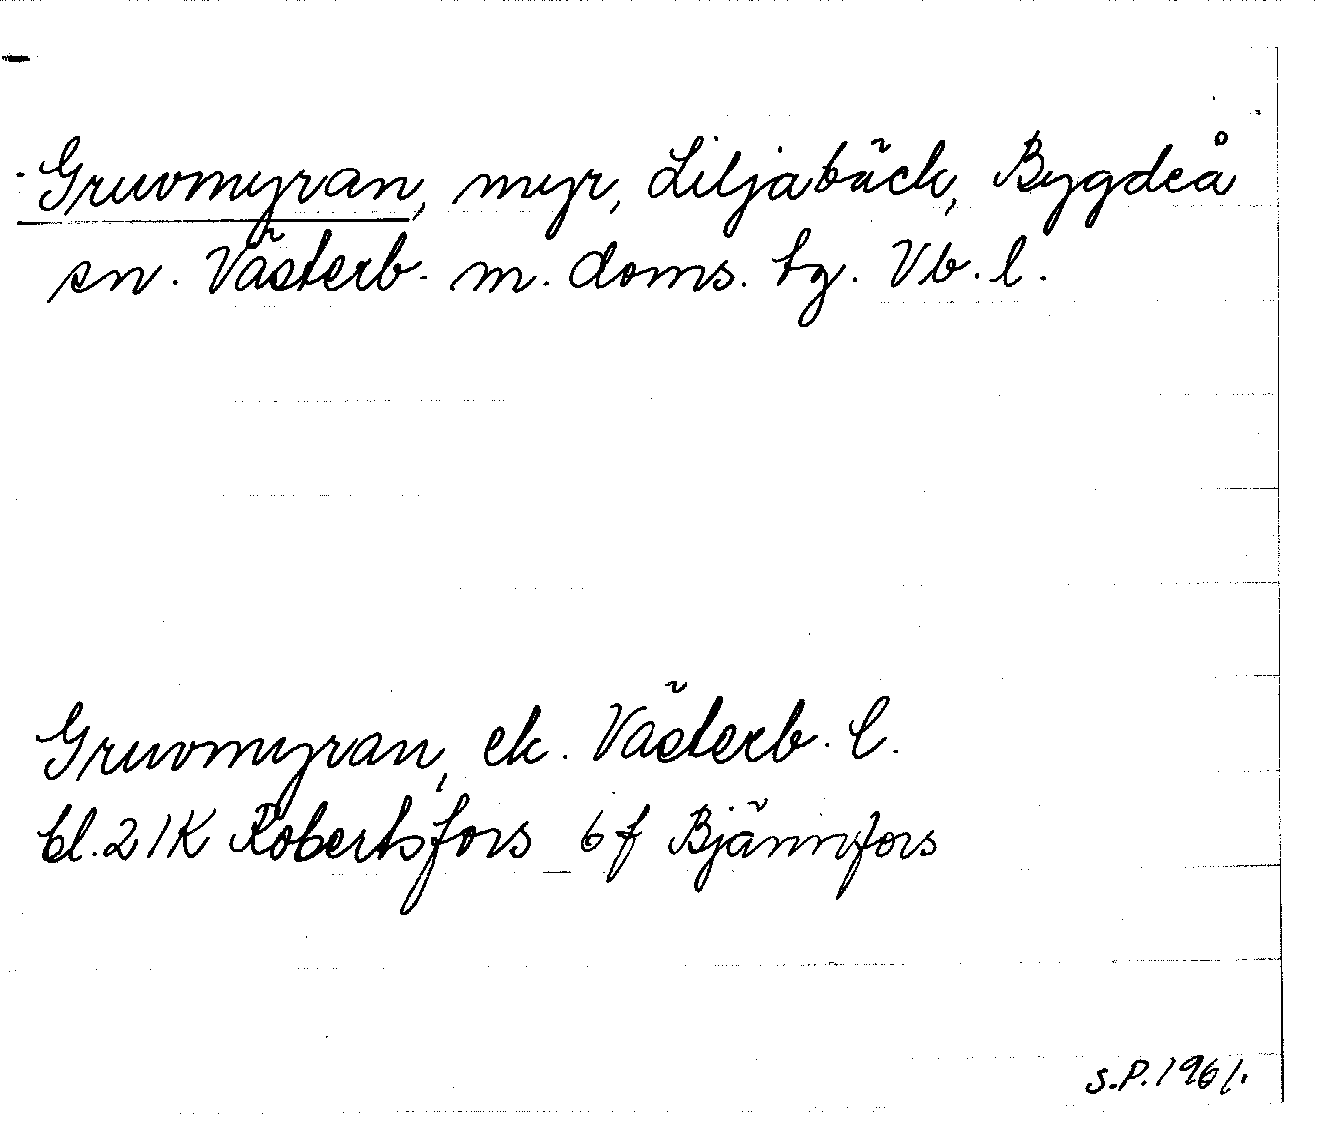 Gruvmyran, myr, Liljabäck, Bygdeå
sn. Västerb. m. doms. tg. Vb. l.
Gruvmyran, ek. Västerb. l.
bl. 21K Robertsfors 6f Bjännfors
S.P. 1961.